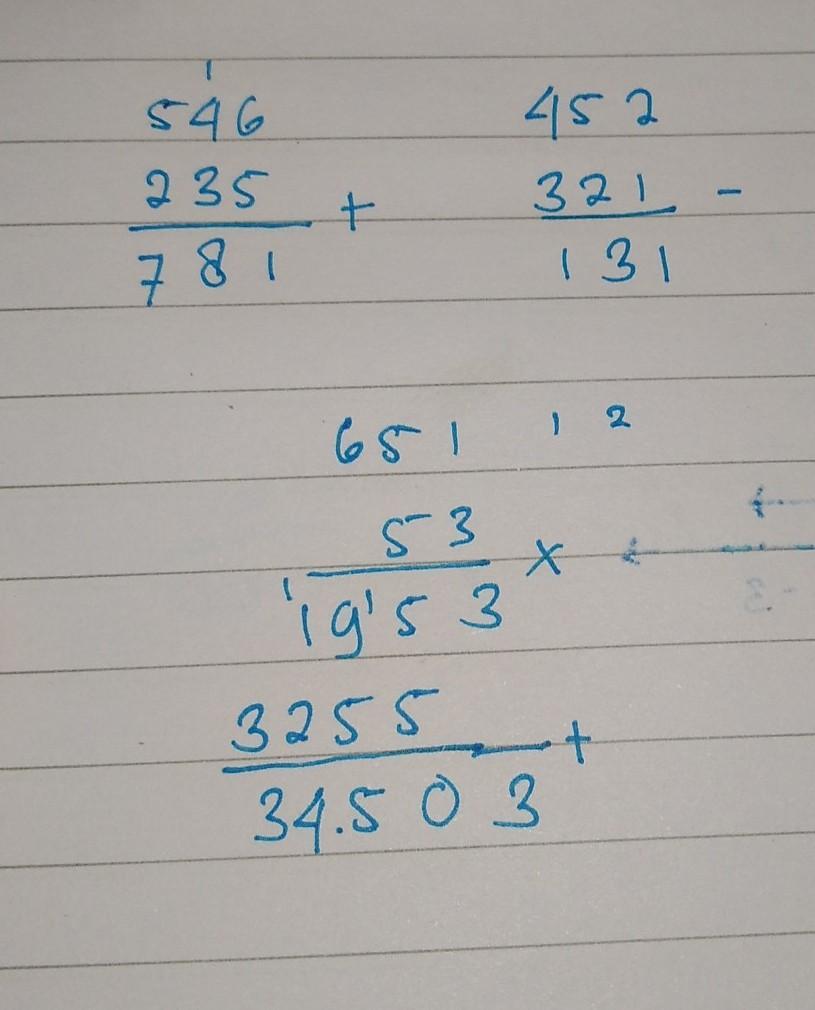 1
546
235 +
781
452
321 -
131
651 1 2
53 ×
1 1
1953
3255 +
34.503